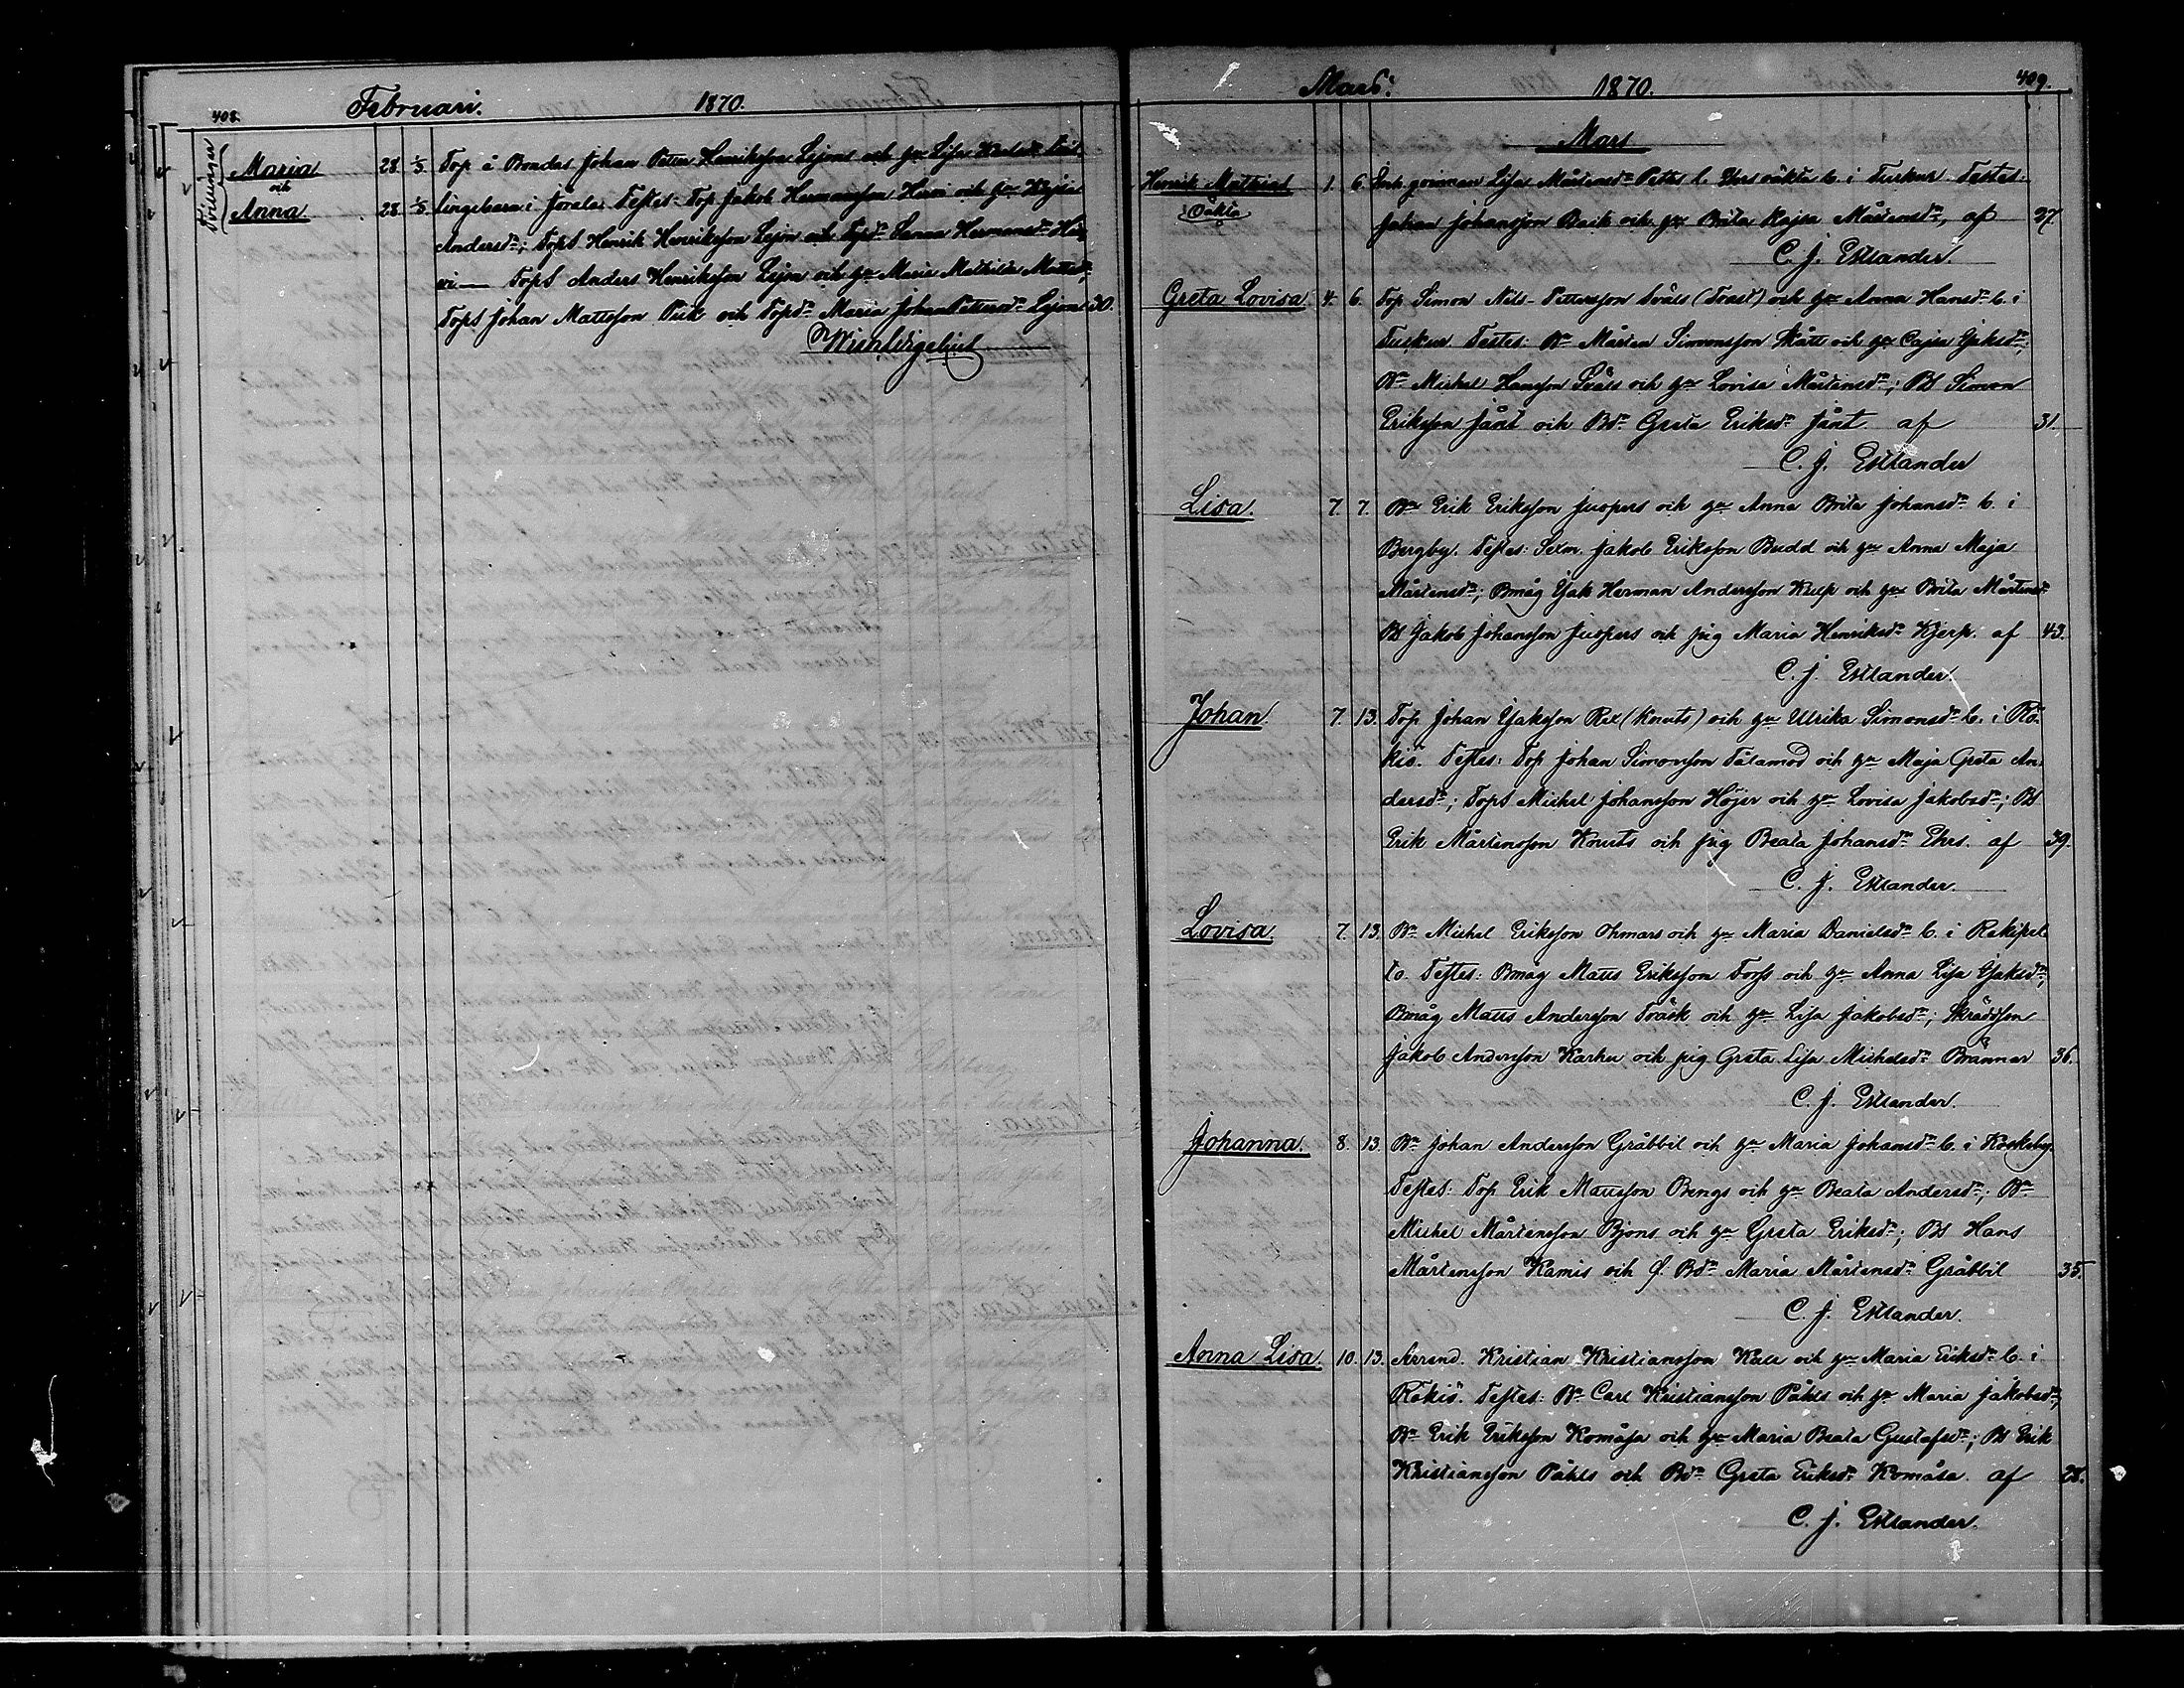 408.
Februari. 1870.
Tvillingar
Maria 28 1/3 Top å Bondas Johan Petter Henriksson Lejons och hu Lisa
och
Anna 28 1/3 lingebarn i Jörala. Testes: Top Jakob Hermansson Harvi och hu Kajsa
Andersdr; TopS Henrik Henriksson Lejon och Topdr Sanna Hermansdr Har
vi — TopS Anders Henriksson Lejon och hu Maria Mathilda Mattsdr
TopS Johan Mattsson Puk och Topdr Maria Johan Pettersdr Lejon 30.
Wichl Urgelius
Mars. 1870. 409.
Mars
Henrik Mathias 1. 6. Inh. qvinnan Lisa Mårtensdr Petas l. Ehrs oäkta b. i Tuskur. Testes:
Oäkta Johan Johansson Back och hu Brita Kajsa Mårtensdr, af 27.
C. J. Estlander.
Greta Lovisa 4. 6. Top Simon Nils-Pettersson Svåls (Trast) och hu Anna Hansdr b. i
Tuskur Testes: Bn Mårten Simonsson Skått och hu Cajsa Gaksdr;
Bn Michel Hansson Svåls och hu Lovisa Mårtensdr; BS Simon
Eriksson Jånt och Bdr Greta Eriksdr Jånt af 31.
C. J. Estlander
Lisa. 7. 7. Bn Erik Eriksson Juspers och hu Anna Brita Johansdr b. i
Bergby. Testes: Sexm. Jakob Eriksson Budd och hu Anna Maja
Mårtensdr; Bmåg Isak Herman Andersson Kulp och hu Brita Mårtensdr
BS Jakob Johansson Juspers och pig Maria Henriksdr Kjerp. af 43.
C. J. Estlander.
Johan. 7. 13. Top Johan Isaksson Rex (Knuts) och hu Ulrika Simonsdr b. i Rö-
kiö. Testes: Top Johan Simonsson Tålamod och hu Maja Greta An-
dersdr; TopS Michel Johansson Höjer och hu Lovisa Jakobsdr; BS
Erik Mårtensson Knuts och pig Beata Johansdr Ehrs. af 39.
C. J. Estlander.
Lovisa. 7. 13. Bn Michel Eriksson Ohmars och hu Maria Danielsdr b. i Rekipel-
to. Testes: Bmåg Matts Eriksson Forss och hu Anna Lisa Isaksdr;
Bmåg Matts Andersson Träsk och hu Lisa Jakobsdr; Skräddson
Jakob Andersson Karhu och pig Greta Lisa Michelsdr Brännar 36.
C. J. Estlander.
Johanna. 8. 13. Bn Johan Andersson Gråbbil och hu Maria Johansdr b. i Koskeby.
Testes: Top Erik Mattsson Bengs och hu Beata Andersdr; Bn
Michel Mårtensson Bjons och hu Greta Eriksdr; BS Hans
Mårtensson Kamis och f. Bdr Maria Mårtensdr Gråbbil 35.
C. J. Estlander.
Anna Lisa. 10. 13. Arrend. Kristian Kristiansson Kall och hu Maria Eriksdr b. i
Rökiö. Testes: Bn Carl Kristiansson Påhls och hu Maria Jakobsdr,
Bn Erik Eriksson Komåsa och hu Maria Beata Gustafsdr; BS Erik
Kristiansson Påhls och Bdr Greta Eriksdr Komåsa. af 28.
C. J. Estlander.